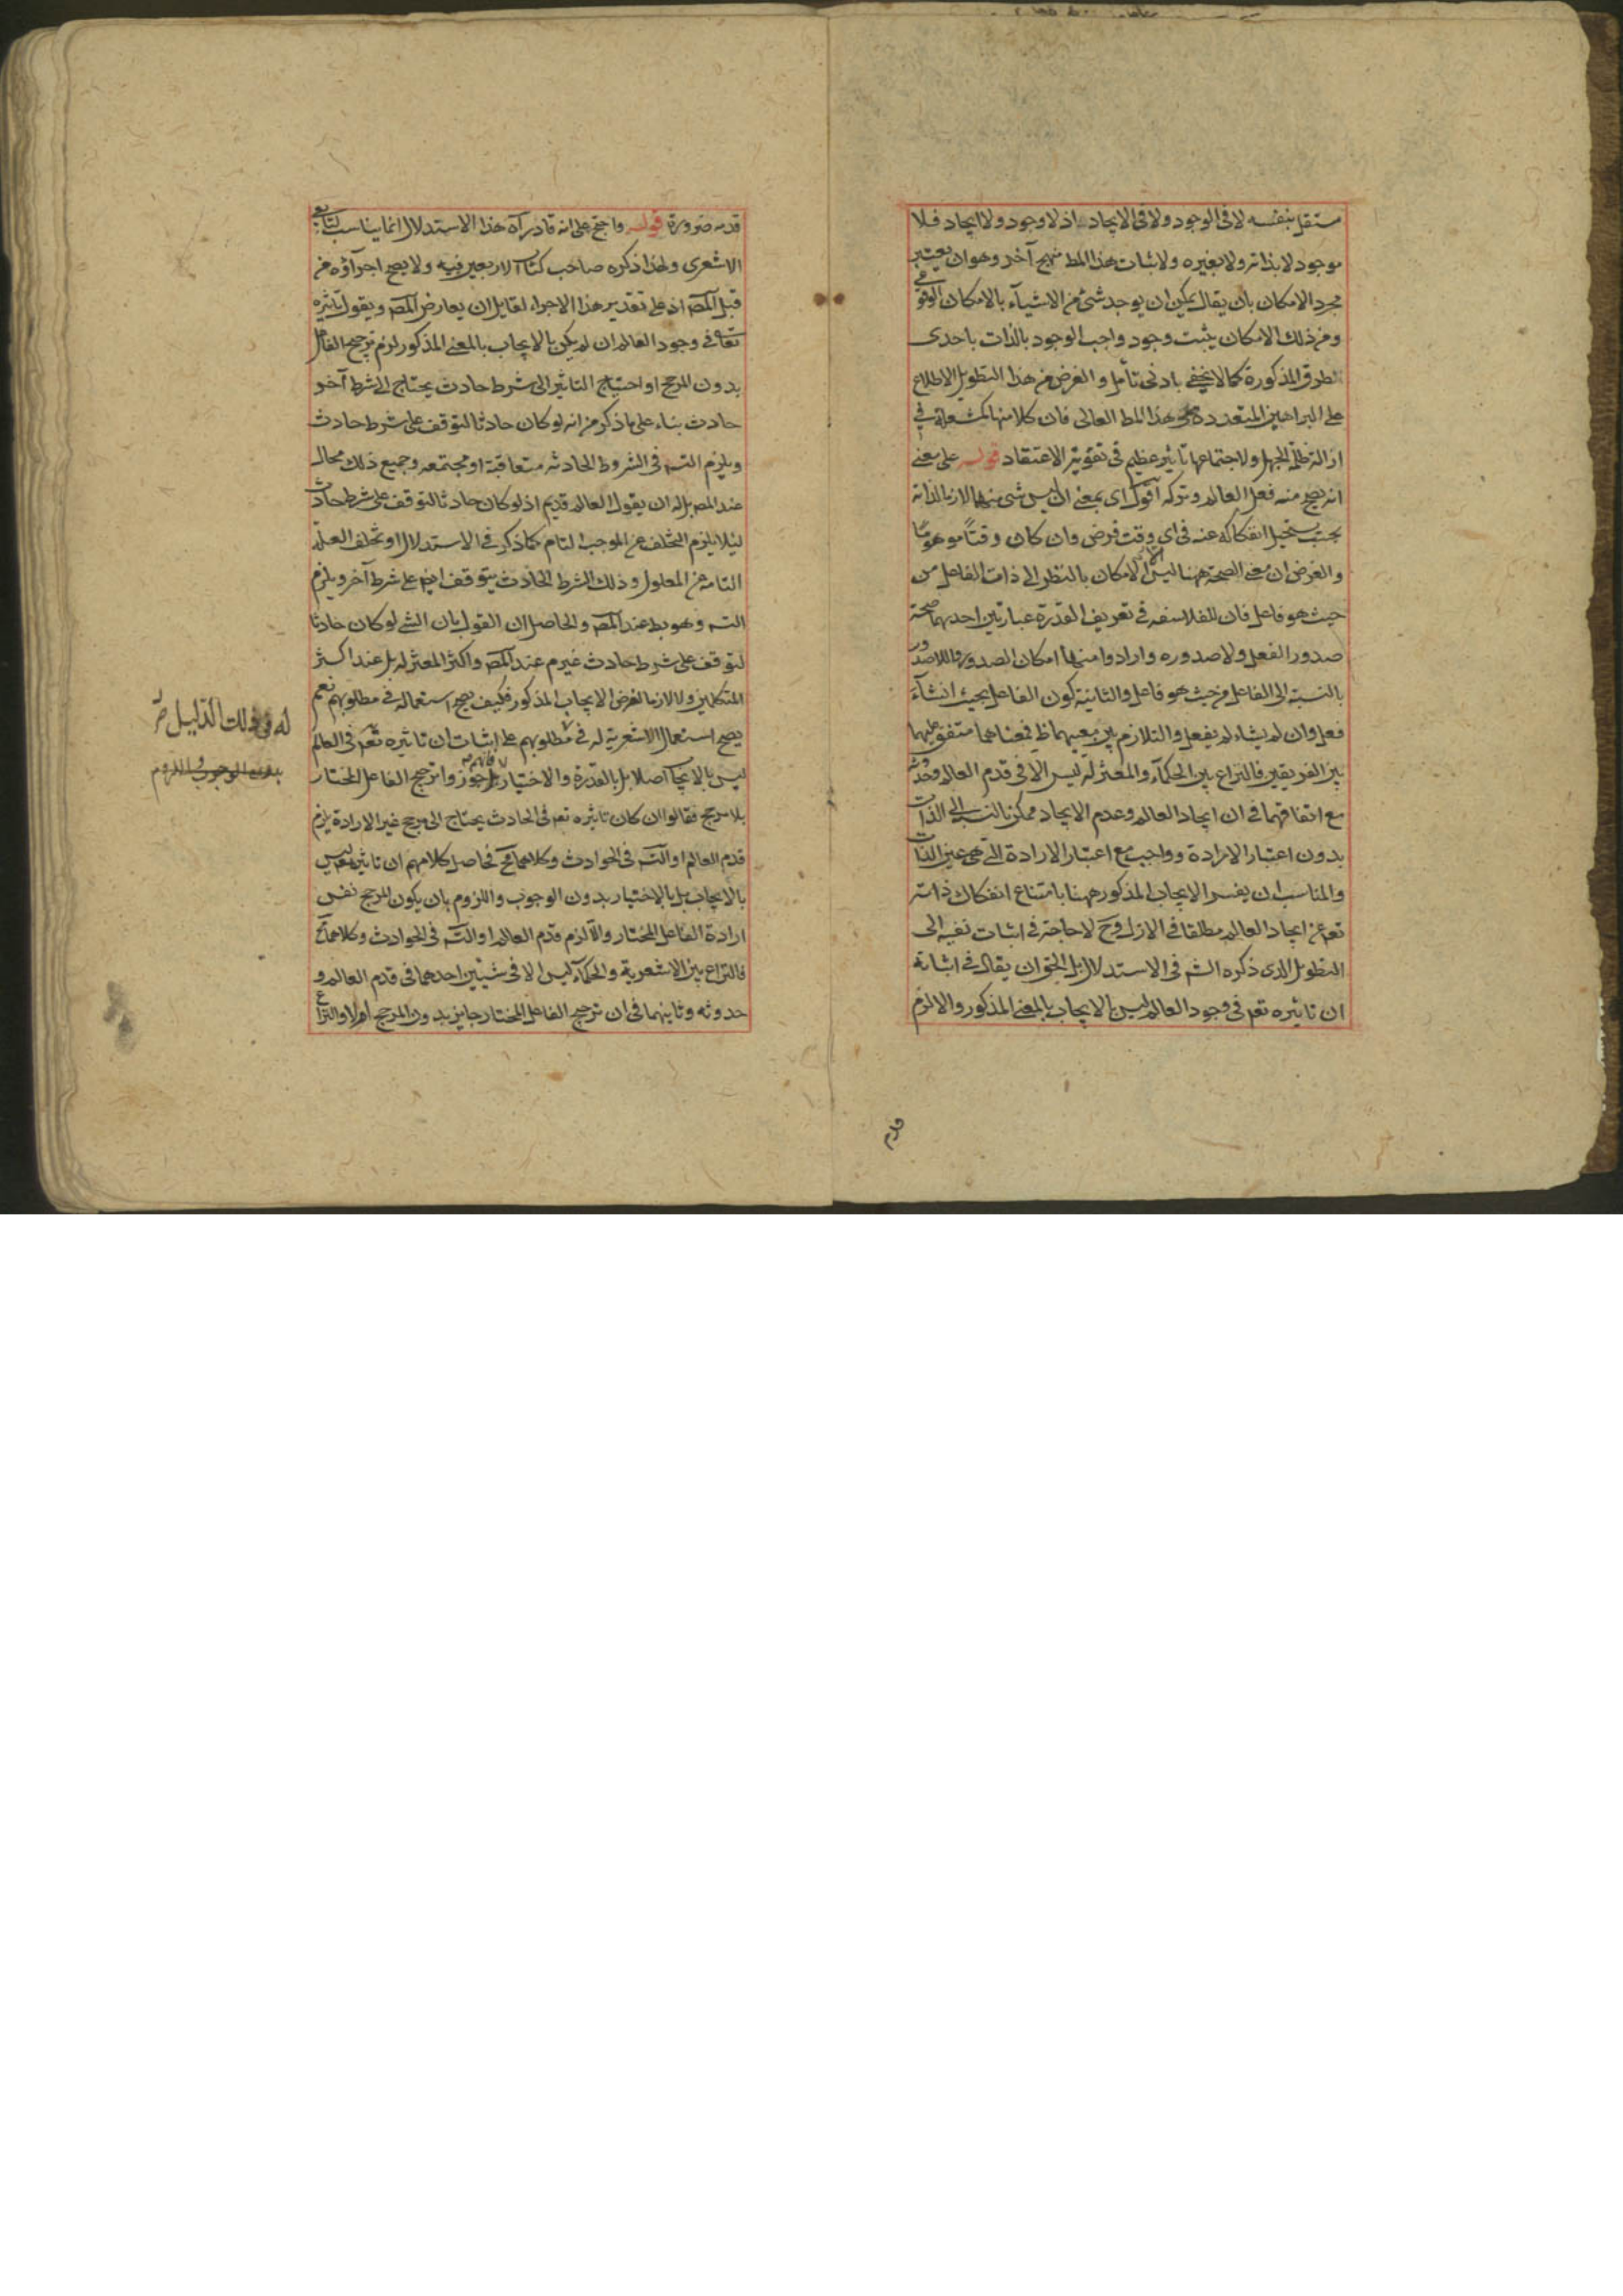 مستقل بنفسه لا فى الوجود ولا فى الايجاد اذ لا وجود ولا ايجاد فلا
موجود لا بذاته ولا بغيره ولاثبات هذا المط منهج آخر وهو ان يعتبر
مجرد الامكان بان يقال يمكن ان يوجد شئ من الاشياء بالامكان الوقوعى
ومن ذلك الامكان يثبت وجود واجب الوجود بالذات باحدى
الطرق المذكورة كما لا يخفى بادنى تأمل و الغرض من هذا التطويل الاطلاع
على البراهين المتعددة على هذا المط العالى فان كلا منها كشعلة فى
ازالة ظلمة الجهل ولاجتماعها تأثير عظيم فى تقوية الاعتقاد قوله على معنى
انه يصح منه فعل العالم وتركه اقول اى بمعنى ان ليس شئ منهما لازما لذاته
بحيث يستحيل انفكاكه عنه فى اى وقت فرض وان كان وقتا موهوما
والغرض ان معنى الصحة ههنا ليس الا الامكان بالنظر الى ذات الفاعل من
حيث هو فاعل فان للفلاسفه فى تعريف القدرة عبارتين احديهما صحة
صدور الفعل ولا صدوره وارادوا منها امكان الصدور واللاصدور
بالنسبة الى الفاعل من حيث هو فاعل والثانية كون الفاعل بحيث ان شاء
فعل وان لم يشاء لم يفعل والتلازم بين معنييهما ظ فمعناهما متفق عليهما
بين الفريقين فالنزاع بين الحكماء والمعتزلة ليس الا فى قدم العالم وحدوثه
مع اتفاقهما فى ان ايجاد العالم وعدم الايجاد ممكن بالنسبة الى الذات
بدون اعتبار الارادة وواجب مع اعتبار الارادة التى هى عين الذات
والمناسب ان يفسر الايجاب المذكور ههنا بامتناع انفكاك ذاته
تعم عن ايجاد العالم مطلقا فى الازل وح لا حاجة فى اثبات نفيه الى
التطويل الذى ذكره الش فى الاستدلال بل الحق ان يقال فى اثباته
ان تاثيره تعم فى وجود العالم ليس بالايجاب بالمعنى المذكور والا لزم
قدم
قدمه ضرورة قوله واحتج على انه قادر آه هذا الاستدلال انما يناسب لتابع
الاشعرى ولهذا ذكره صاحب كتاب الاربعين فيه ولا يصح اجراؤه من
قبل المص اذ على تقدير هذا الاجراء لقايل ان يعارض المص ويقول تاثيره
تعالى فى وجود العالم ان لم يكن بالايجاب بالمعنى المذكور لزم ترجيح الفاعل
بدون المرجح او احتياج التاثير الى شرط حادث يحتاج الى شرط آخر
حادث بناء على ما ذكر من انه لو كان حادثا لتوقف على شرط حادث
ويلزم التس فى الشروط الحادثه متعاقبة او مجتمعه وجميع ذلك محال
عند المص بل له ان يقول العالم قديم اذ لو كان حادثا لتوقف على شرط حادث
ليلا يلزم التخلف عن الموجب التام كما ذكر فى الاستدلال او تخلف العلة
التامه عن المعلول وذلك الشرط الحادث يتوقف ايضا على شرط آخر ويلزم
التس وهو بط عند المص والحاصل ان القول بان الشئ لو كان حادثا
لتوقف على شرط حادث غير م عند المص واكثر المعتزلة بل عند اكثر
المتكلمين ولا لازما لفرض الايجاب المذكور فكيف يصح استعماله فى مطلوبهم نعم
يصح استعمال الاشعرية له فى مطلوبهم على اثبات ان تاثيره تعم فى العالم
ليس بالايجاب اصلا بل بالقدرة والاختيار بل جوزوا ترجيح الفاعل المختار
بلا مرجح فقالوا ان كان تاثيره تعم فى الحادث يحتاج الى مرجح غير الارادة يلزم
قدم العالم او التس فى الحوادث وكلاهما مح فحاصل كلامهم ان تاثيره تعم ليس
بالايجاب بل بالاختيار بدون الوجوب واللزوم بان يكون المرجح نفس
ارادة الفاعل المختار والا لزم قدم العالم او التس فى الحوادث وكلاهما مح
فالنزاع بين الاشعرية والحكماء ليس الا فى شيئين احدهما فى قدم العالم و
حدوثه وثانيهما فى ان ترجيح الفاعل المختار جايز بدون المرجح او لا والنزاع
الدليل
بدون الوجوب واللزوم